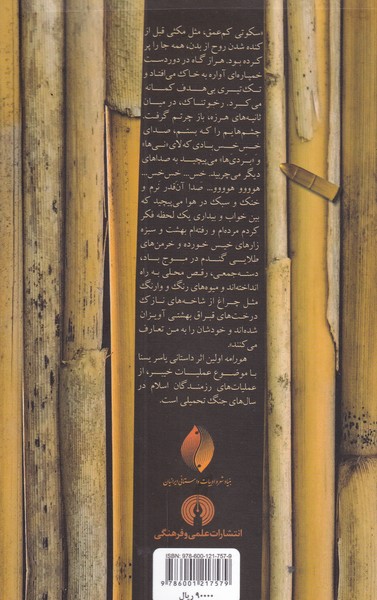 سکوتی کم‌عمق، مثل مکثی قبل از
کنده شدن روح از بدن، همه جا را پر
کرده بود. هر از گاه در دوردست
خمپاره‌ای آواره به خاک می‌افتاد و
تک‌تیری بی‌هدف کمانه
می‌کرد. رخوتناک، در میان
ثانیه‌های هرزه، باز چرتم گرفت.
چشم‌هایم را که بستم، صدای
خس‌خس بادی که لای «نی‌ها»
و «بردی‌ها» می‌پیچید به صداهای
دیگر می‌چربید. خس... خس‌خس...
هوووو هوووو... صدا آن‌قدر نرم و
خنک و سبک در هوا می‌پیچید که
بین خواب و بیداری یک لحظه فکر
کردم مرده‌ام و رفته‌ام بهشت و سبزه
زارهای خیس خورده و خرمن‌های
طلایی گندم در موج باد،
دسته‌جمعی، رقص محلی به راه
انداخته‌اند و میوه‌های رنگ و وارنگ
مثل چراغ از شاخه‌های نازک
درخت‌های قراق بهشتی آویزان
شده‌اند و خودشان را به من تعارف
می‌کنند.
هورامه اولین اثر داستانی یاسر یسنا
با موضوع عملیات خیبر، از
عملیات‌های رزمندگان اسلام در
سال‌های جنگ تحمیلی است.
بنیاد شعر و ادبیات داستانی ایرانیان
انتشارات علمی و فرهنگی
ISBN: 978-600-121-757-9
9 786001 217579
۹۰۰۰۰ ریال